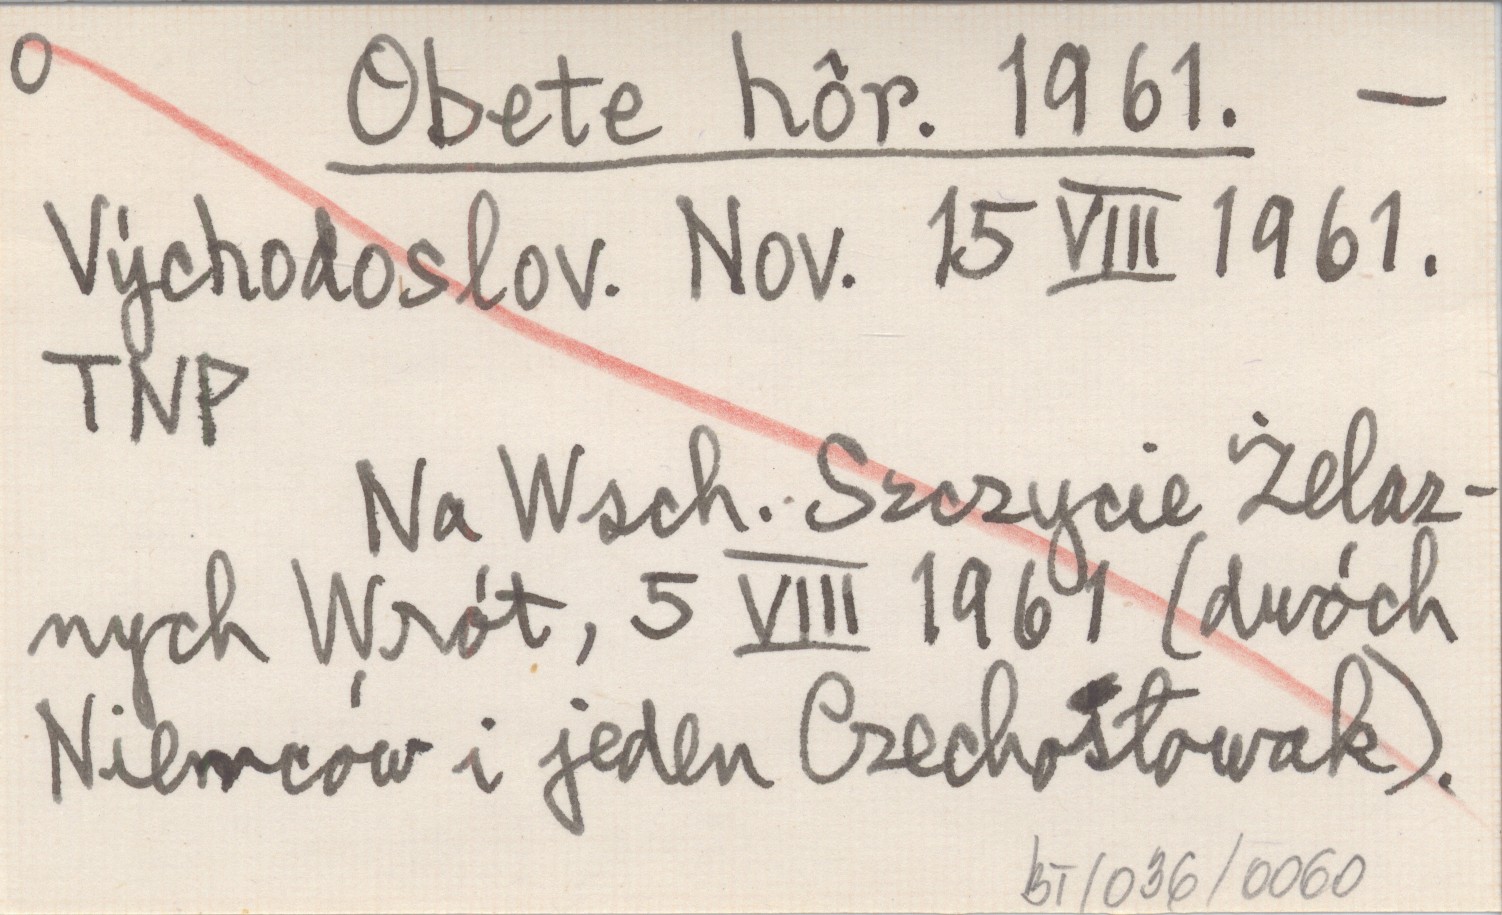 O Obete hôr. 1961. —
Východoslov. Nov. 15 VIII 1961.
TNP
Na Wsch. Szczycie Żelaz-
nych Wrót, 5 VIII 1961 (dwóch
Niemców i jeden Czechosłowak).
BT/036/0060